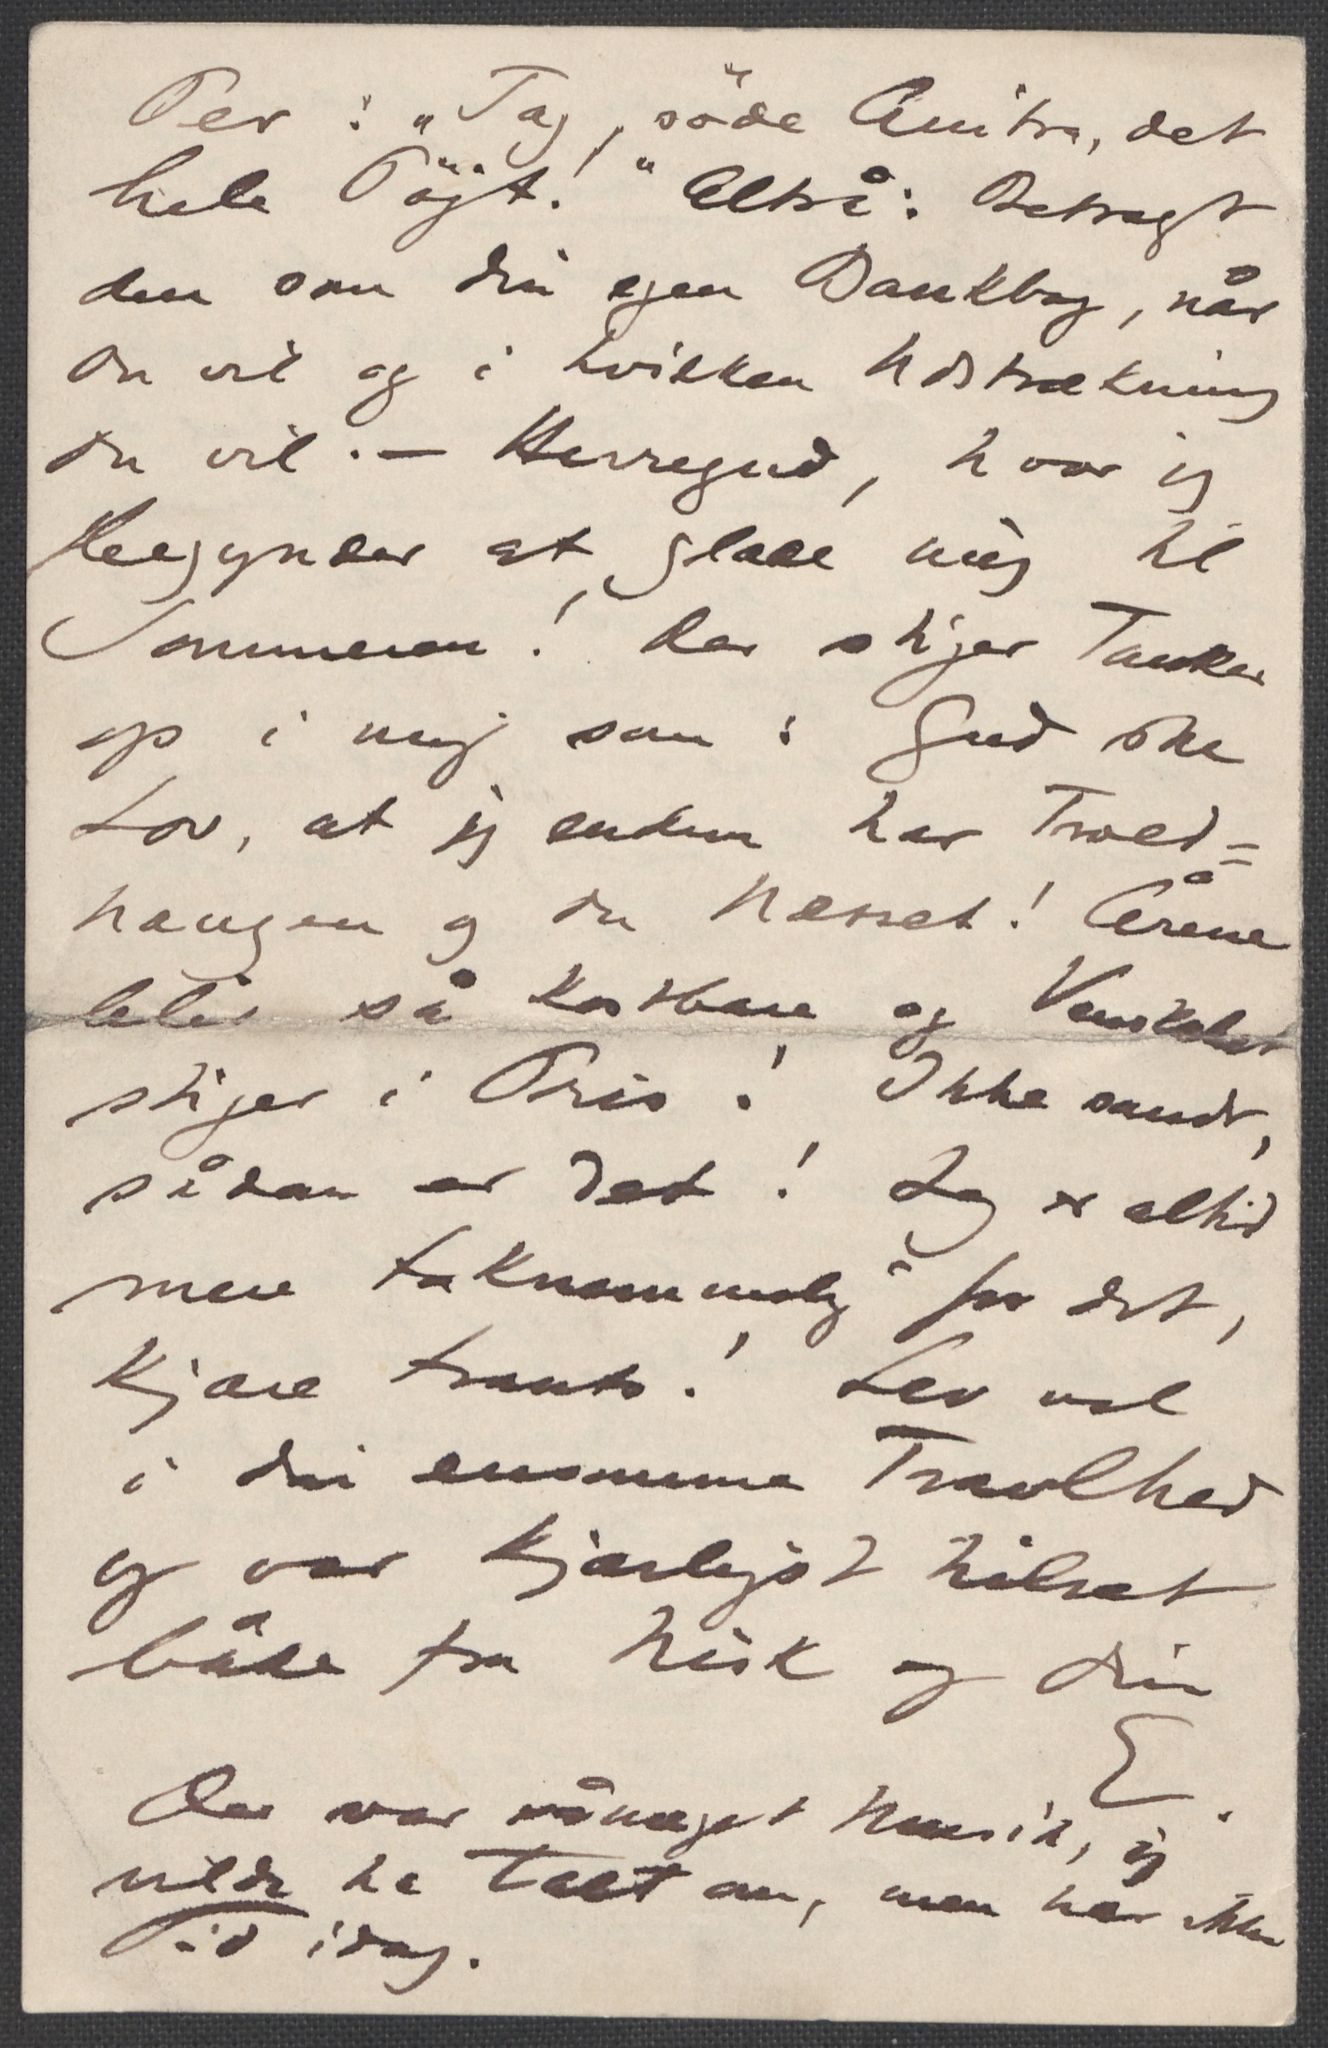 Peer: „Tag, söde Anitra, det
hele Töjt!" Altså: Betragt
den som din egen Bankbog, når
du vil og i hvilken Udstrækning
du vil. — Herregud, hvor jeg
begynder at glæde mig til
Sommeren! Der stiger Tanker
op i mig som: Gud ske
Lov, at jeg endnu har Trold=
haugen og du Næsset! Årene
blir så kostbare og Venskabet
stiger i Pris! Ikke sandt,
sådan er det! Jeg er altid
mere taknemmelig for det,
kjære Frants! Lev vel
i din ensomme Travlhed
og vær kjærligst hilset
både fra Nisk og din
E.
Der var så meget Musik, jeg
vilde ha talt om, men har ikke
Tid idag.